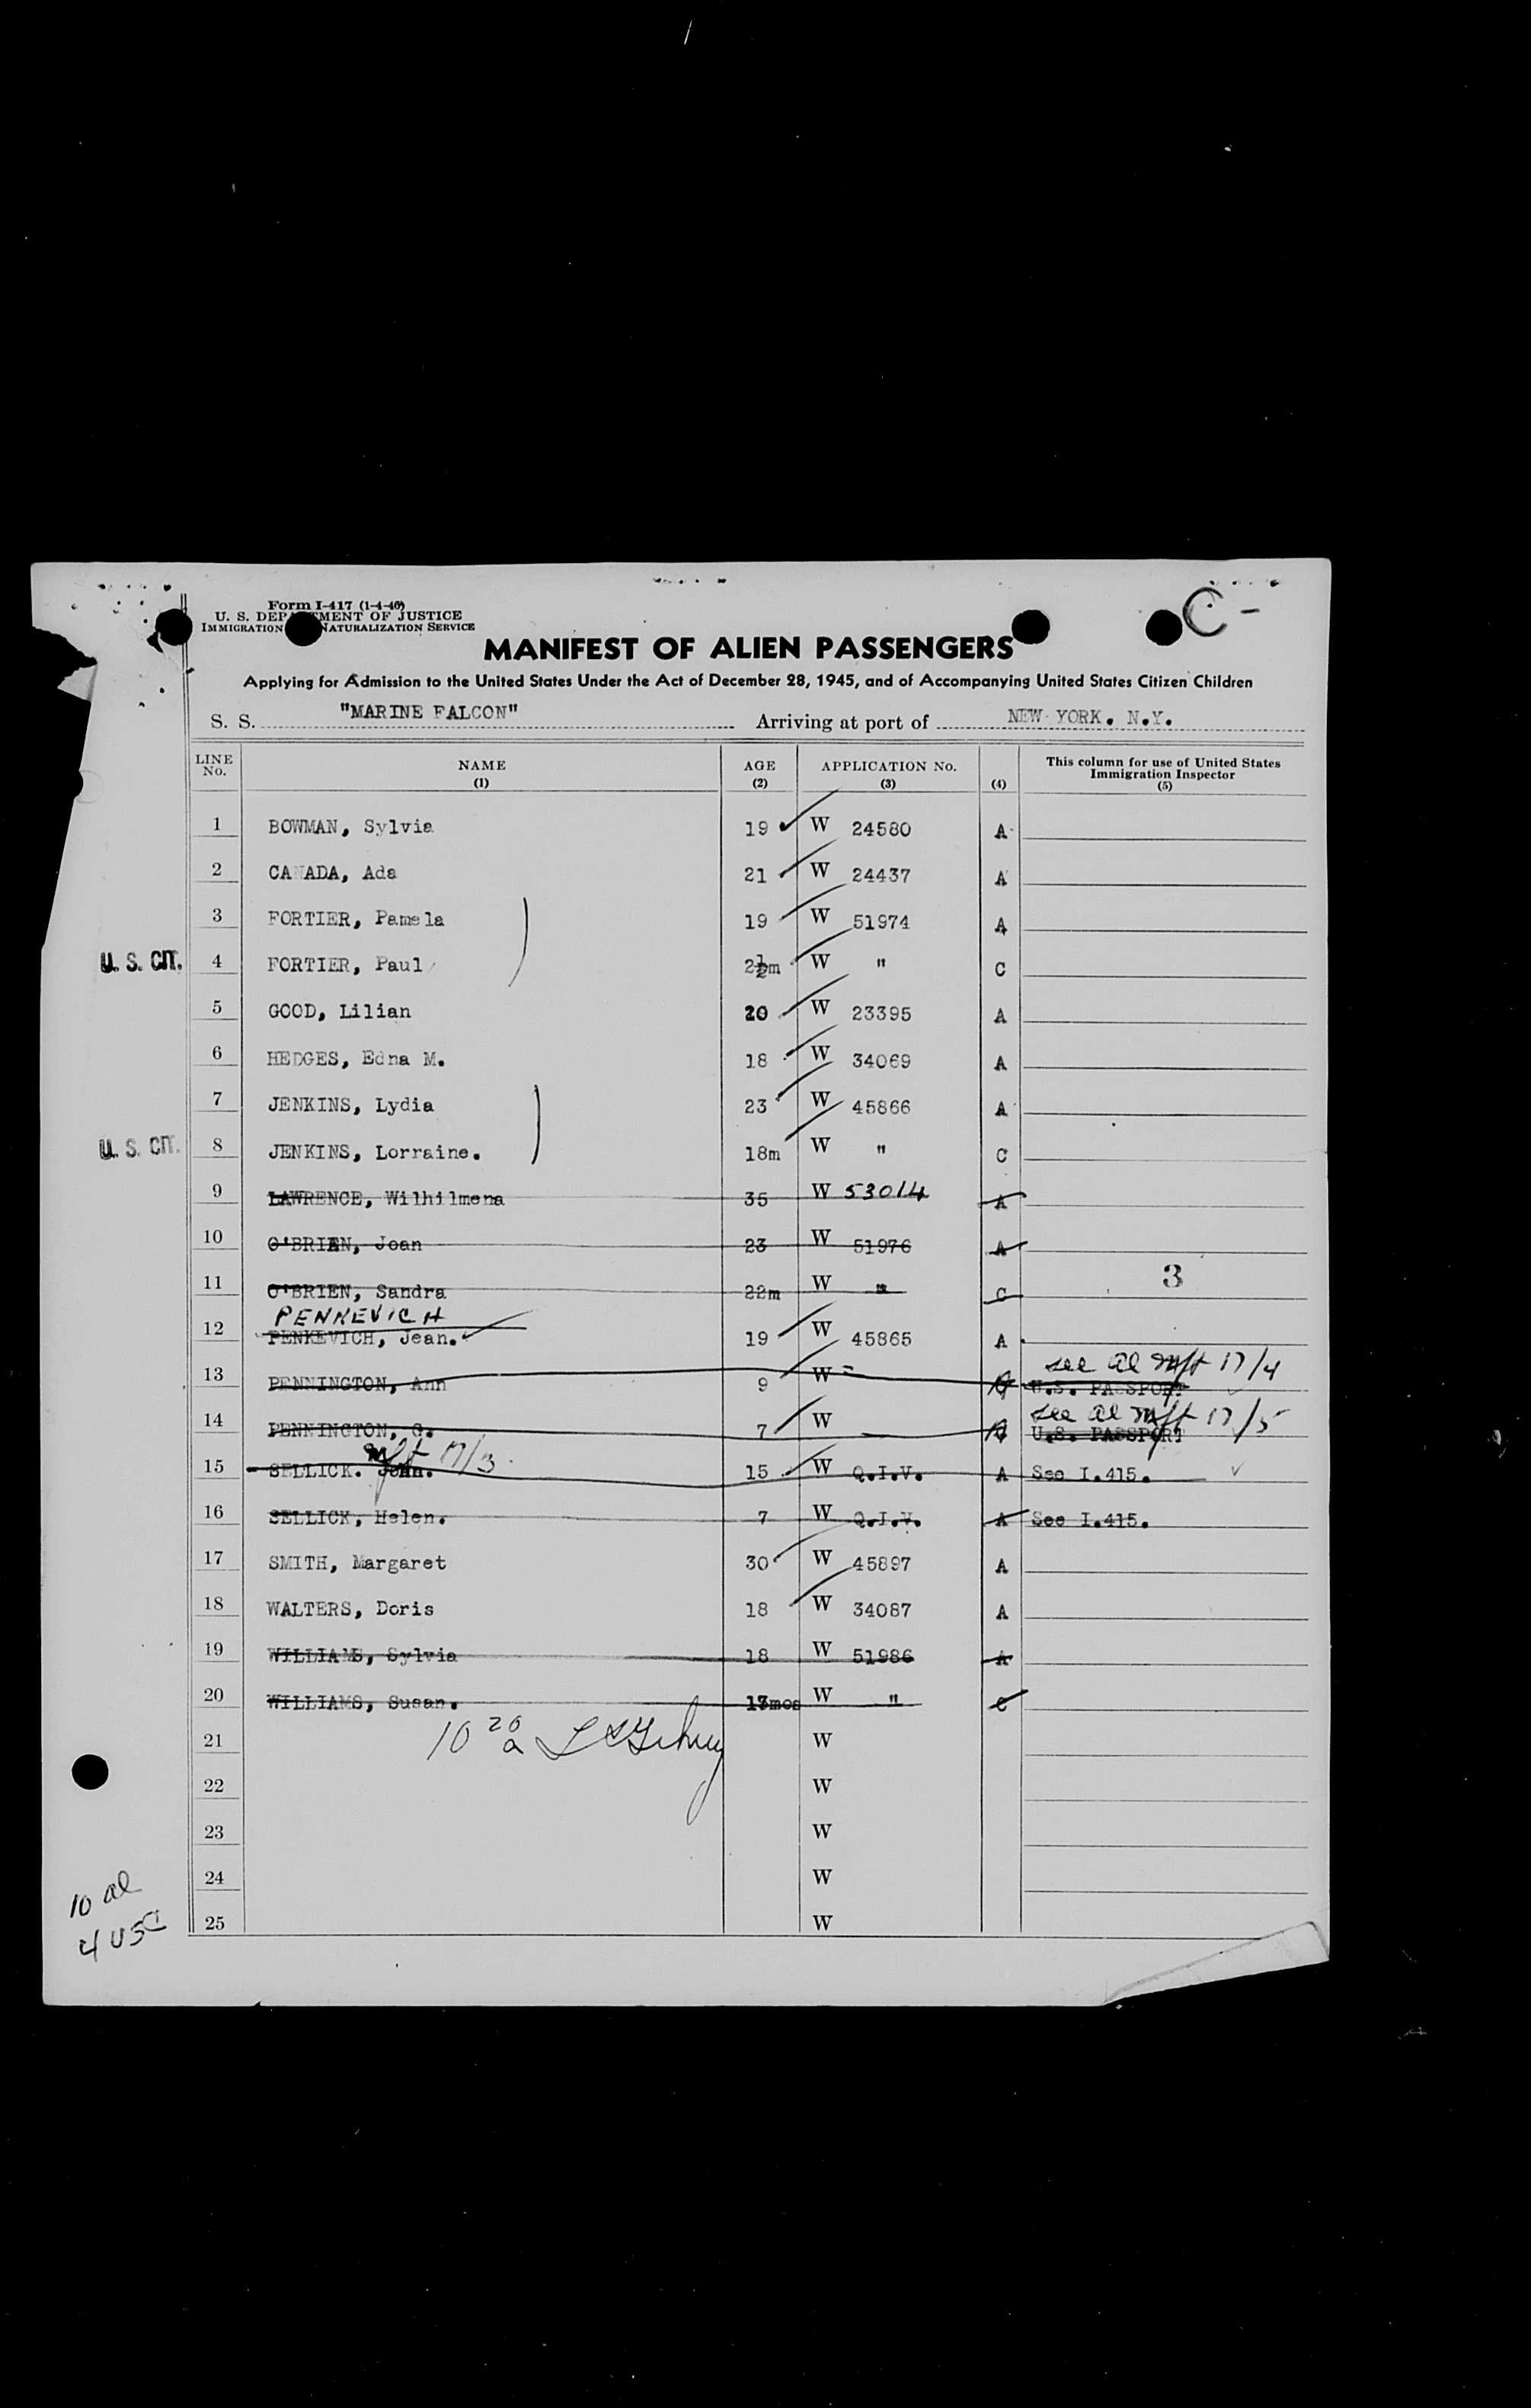 C -
Form I-417 (1-4-46)
U. S. DEP MENT OF JUSTICE
IMMIGRATION NATURALIZATION SERVICE
MANIFEST OF ALIEN PASSENGERS
Applying for Admission to the United States Under the Act of December 28, 1945, and of Accompanying United States Citizen Children
S. S. "MARINE FALCON" Arriving at port of NEW YORK. N.Y.
LINE No. NAME (1) AGE (2) APPLICATION No. (3) (4) This column for use of United States Immigration Inspector (5)
1 BOWMAN, Sylvia 19 W 24580 A
2 CANADA, Ada 21 W 24437 A
3 FORTIER, Pamela 19 W 51974 A
U. S. CIT. 4 FORTIER, Paul 2½m W " C
5 GOOD, Lilian 20 W 23395 A
6 HEDGES, Edna M. 18 W 34069 A
7 JENKINS, Lydia 23 W 45866 A
U. S. CIT. 8 JENKINS, Lorraine. 18m W " C
9 LAWRENCE, Wilhilmena 35 W 53014 A
10 O'BRIEN, Joan 23 W 51976 A
11 O'BRIEN, Sandra 22m W " C 3
PENKEVICH
12 PENKEVICH, Jean. 19 W 45865 A
see al mft 17/4
13 PENNINGTON, Ann 9 W - U.S. PASSPORT
see al mft 17/5
14 PENNINGTON, G. 7 W U.S. PASSPORT
mft 17/3
15 SELLICK. John. 15 W Q.I.V. A See I.415.
16 SELLICK, Helen. 7 W Q.I.V. A See I.415.
17 SMITH, Margaret 30 W 45897 A
18 WALTERS, Doris 18 W 34087 A
19 WILLIAMS, Sylvia 18 W 51986 A
20 WILLIAMS, Susan. 17mos W " C
10 20 a
21 W
22 W
23 W
24 W
25 W
10 al
4 USC